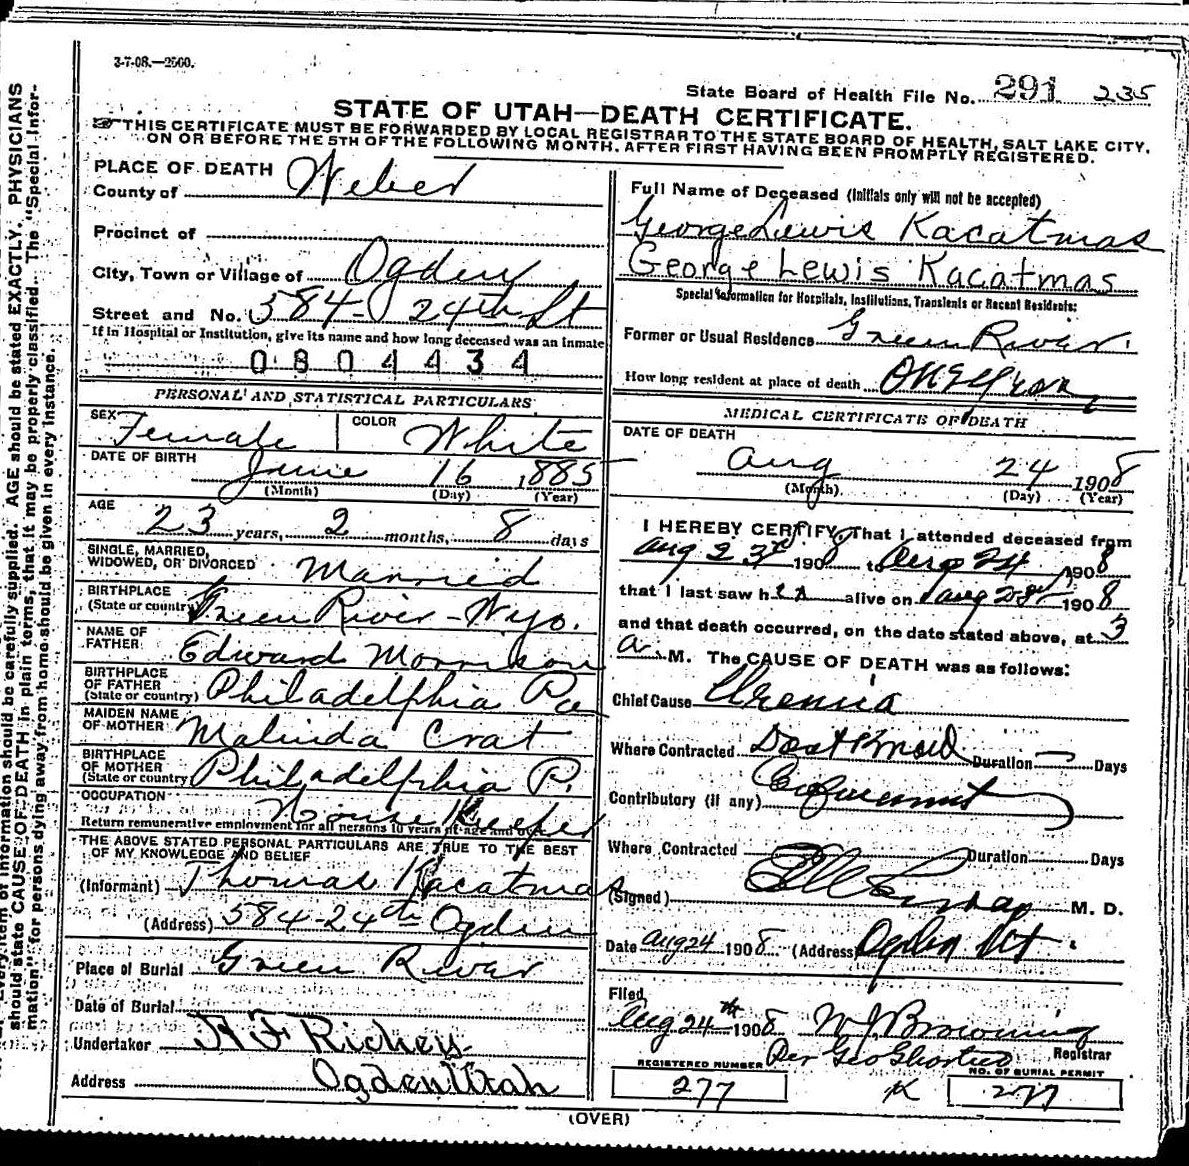 3-7-08.—2500.
State Board of Health File No. 291 235
STATE OF UTAH—DEATH CERTIFICATE.
THIS CERTIFICATE MUST BE FORWARDED BY LOCAL REGISTRAR TO THE STATE BOARD OF HEALTH, SALT LAKE CITY,
ON OR BEFORE THE 5TH OF THE FOLLOWING MONTH, AFTER FIRST HAVING BEEN PROMPTLY REGISTERED.
PLACE OF DEATH
County of Weber
Precinct of
City, Town or Village of Ogden
Street and No. 584- 24th St
If in Hospital or Institution, give its name and how long deceased was an inmate
0804434
PERSONAL AND STATISTICAL PARTICULARS
SEX Female COLOR White
DATE OF BIRTH June 16 1885
(Month) (Day) (Year)
AGE 23 years, 2 months, 8 days
SINGLE, MARRIED,
WIDOWED, OR DIVORCED Married
BIRTHPLACE
(State or country) Green River - Wyo.
NAME OF
FATHER Edward Morrison
BIRTHPLACE
OF FATHER
(State or country) Philadelphia Pa
MAIDEN NAME
OF MOTHER Malinda Crat
BIRTHPLACE
OF MOTHER
(State or country Philadelphia P.
OCCUPATION House Keeper
Return remunerative employment for all persons 10 years of age and over
THE ABOVE STATED PERSONAL PARTICULARS ARE TRUE TO THE BEST
OF MY KNOWLEDGE AND BELIEF
(Informant) Thomas Kacatmas
(Address) 584-24th Ogden
Place of Burial Green River
Date of Burial
Undertaker A F Richey
Address Ogden Utah
Full Name of Deceased (Initials only will not be accepted)
George Lewis Kacatmas
George Lewis Kacatmas
Special Information for Hospitals, Institutions, Transients or Recent Residents:
Former or Usual Residence Green River.
How long resident at place of death
MEDICAL CERTIFICATE OF DEATH
DATE OF DEATH
Aug 24 1908
(Month) (Day) (Year)
I HEREBY CERTIFY That I attended deceased from
Aug 23rd 1908 to Aug 24 1908
that I last saw her alive on Aug 1908
and that death occurred, on the date stated above, at 3
a. M. The CAUSE OF DEATH was as follows:
Chief Cause Uremia
Where Contracted Duration Days
Contributory (if any)
Where Contracted Duration Days
(Signed) M. D.
Date Aug 24 1908 (Address Ogden Ut.
Filed
Aug 24th 1908 W J Browning
Registrar
Per Geo
REGISTERED NUMBER 277
K
NO. OF BURIAL PERMIT 277
(OVER)
Every item of information should be carefully supplied. AGE should be stated EXACTLY. PHYSICIANS
should state CAUSE OF DEATH in plain terms, that it may be properly classified. The "Special Infor-
mation" for persons dying away from home should be given in every instance.